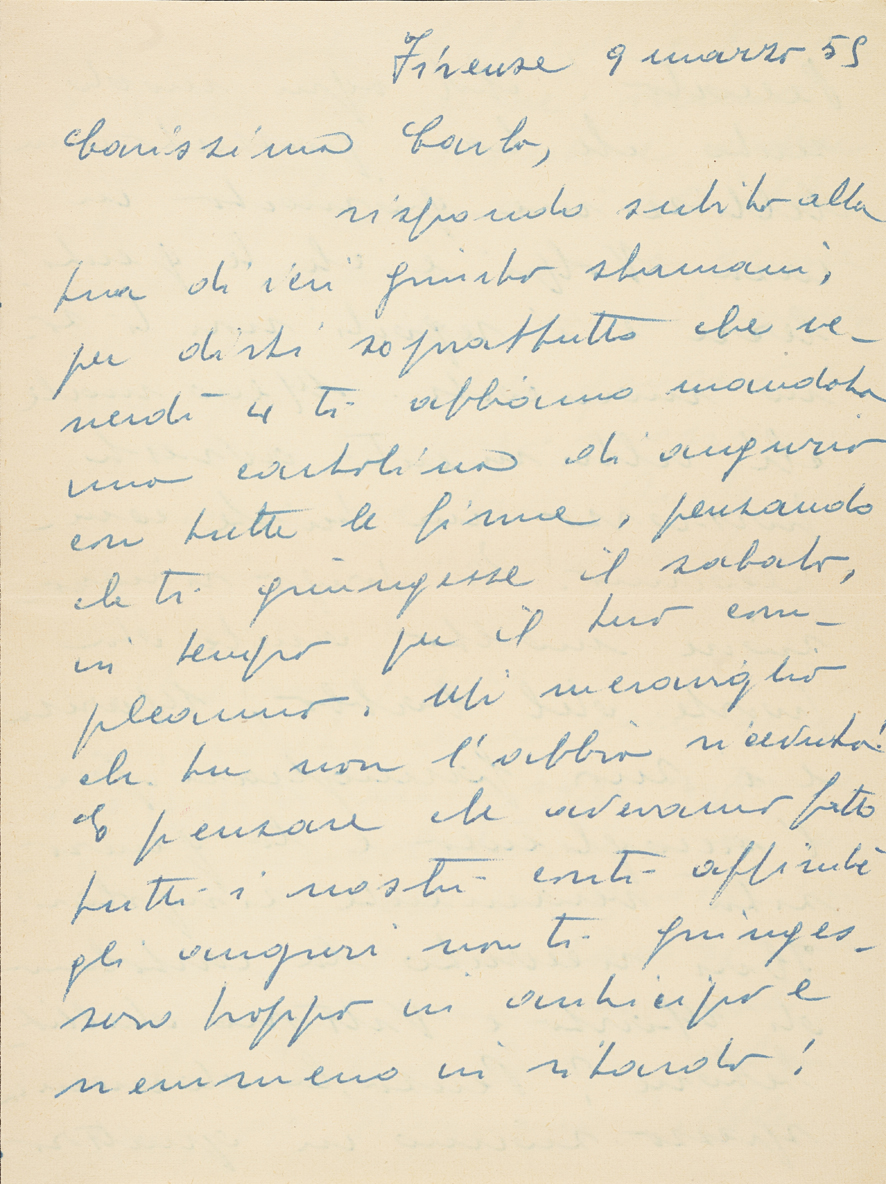 Firenze 9 marzo 55
Carissimo Carlo,
rispondo subito alla
tua di ieri giunta stamani,
per dirti soprattutto che ve-
nerdì 4 ti abbiamo mandato
una cartolina di augurio
con tutte le firme, pensando
che ti giungesse il sabato,
in tempo per il tuo com-
pleanno. Mi meraviglio
che tu non l'abbia ricevuta!
E pensare che avevamo fatto
tutti i nostri conti affinché
gli auguri non ti giunges-
sero troppo in anticipo e
nemmeno in ritardo!